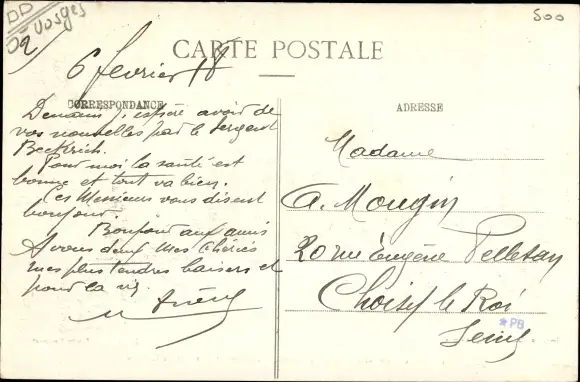 DD
Vosges
2
500
CARTE POSTALE
6 février 18
CORRESPONDANCE
ADRESSE
Demain j'espère avoir de
vos nouvelles par le Sergent
Beckrich.
Pour moi la santé est
bonne et tout va bien.
Ces Messieurs vous disent
bonjour.
Bonjour aux amis
A vous deux mes Chéries
mes plus tendres baisers et
pour la vie
Madame
A. Mougin
20 rue Eugène Pelletan
Choisy le Roi
Seine
*PB